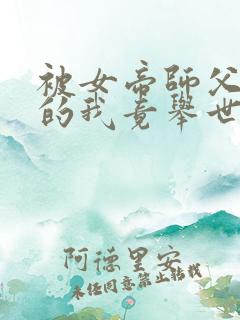 被女帝師父
的我竟舉世
阿德里安
未經同意禁止轉載